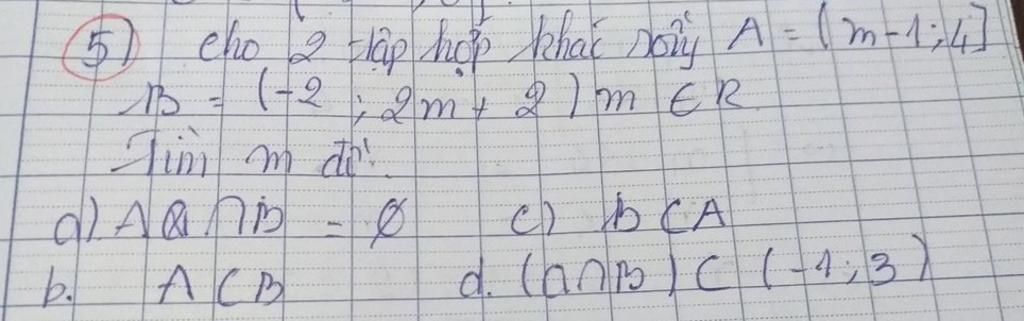 5) cho 2 tập hợp khác rỗng A = (m-1;4]
B = (-2 ; 2m + 2) m ∈ R
Tìm m để:
a) A ∩ B = ∅ c) B ⊂ A
b. A ⊂ B d. (A∩B) ⊂ (-1;3)